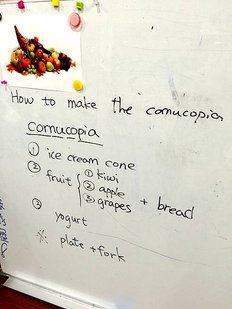 How to make the cornucopia
cornucopia
① ice cream cone
② fruit { ① kiwi
② apple
③ grapes + bread
③ yogurt
※ plate + fork